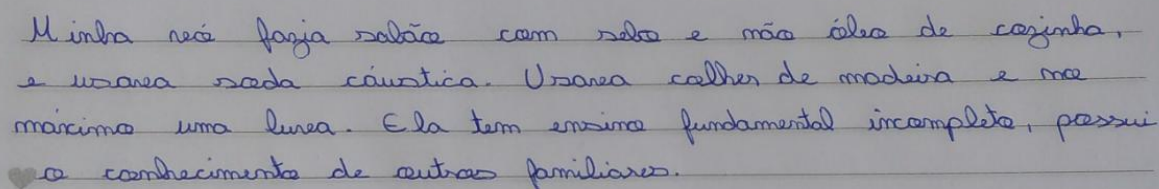 Minha vó fazia sabão com sebo e não óleo de cozinha,
e usava soda cáustica. Usava colher de madeira e no
máximo uma luva. Ela tem ensino fundamental incompleto, possui
o conhecimento de outros familiares.